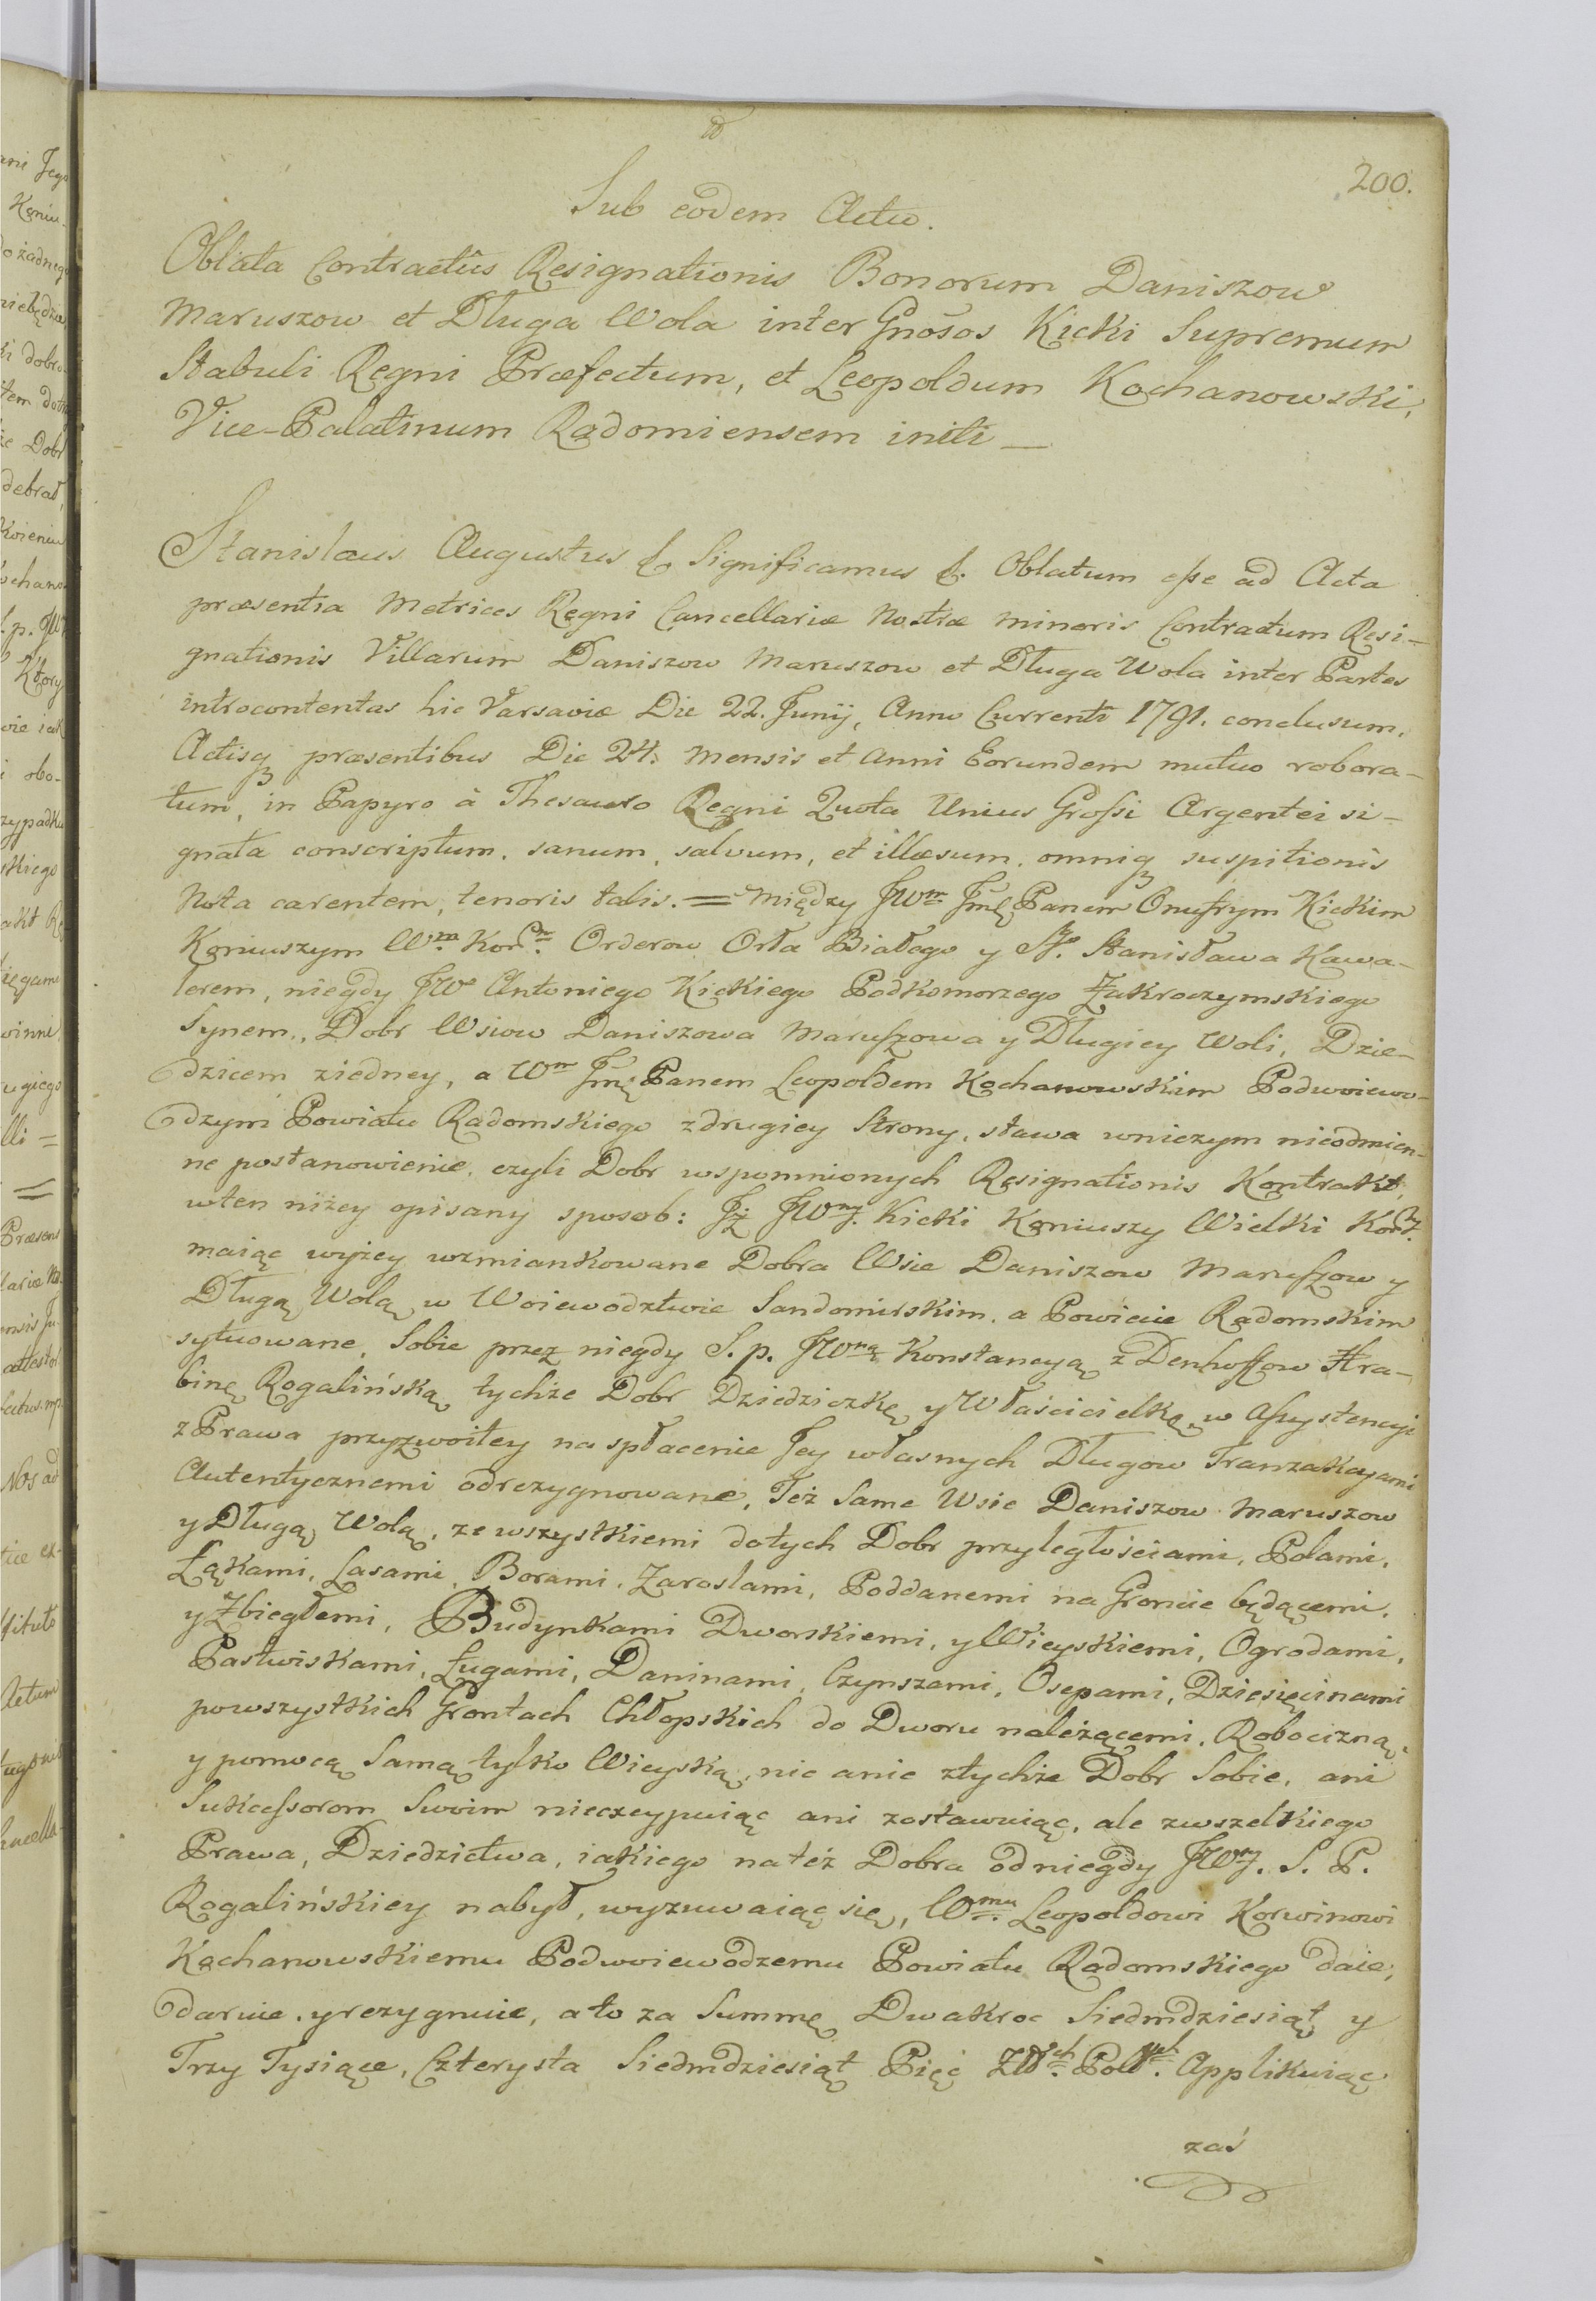 200.
Sub eodem Actu.
Oblata Contractûs Resignationis Bonorum Daniszow
Maruszow et Długa Wola inter Gnosos Kicki Supremum
Stabuli Regni Præfectum, et Leopoldum Kochanowski,
Vice-Palatinum Radomiensem initi —
Stanislaus Augustus & Significamus &. Oblatum esse ad Acta
præsentia Metrices Regni Cancellariæ Nostræ Minoris Contractum Resi-
gnationis Villarum Daniszow Maruszow et Długa Wola inter Partes
introcontentas hic Varsaviæ Die 22. Junij, Anno Currenti 1791. conclusum,
Actisq præsentibus Die 24. Mensis et Anni Eorundem mutuo robora-
tum, in Papyro à Thesauro Regni Quota Unius Grossi Argentei si-
gnata conscriptum, sanum, salvum, et illæsum, omniq suspitionis
Nota carentem, tenoris talis. = Między JWm Jmę Panem Onufrym Kickim
Koniuszym Wm Kornn. Orderow Orła Białego y St. Stanisława Kawa-
lerem, niegdy JWo Antoniego Kickiego Podkomorzego Zakroczymskiego
Synem, Dobr Wsiow Daniszowa Maruszowa y Długiey Woli, Dzie-
dzicem ziedney, a Wm Jmę Panem Leopoldem Kochanowskim Podwoiewo-
dzym Powiatu Radomskiego zdrugiey Strony, stawa wniczym nieodmien-
ne postanowienie, czyli Dobr wspomnionych Resignationis Kontrakt,
wten niżey opisany sposob: Jż JWny. Kicki Koniuszy Wielki Kornny.
maiąc wyżey wzmiankowane Dobra Wsie Daniszow Maruszow y
Długą Wolą w Woiewodztwie Sandomirskim, a Powiecie Radomskim
sytuowane, Sobie przez niegdy S. p. JWną Konstancyą z Denhoffow Hra-
binę Rogalińską tychże Dobr Dziedziczkę y Właścicielkę, w Assystencyi
z Prawa przyzwoitey na spłacenie Jey własnych Długow Tranzakcyami
Autentycznemi odrezygnowane, Też Same Wsie Daniszow Maruszow
y Długą Wolą, ze wszystkiemi dotych Dobr przyległościami, Polami,
Łąkami, Lasami, Borami, Zaroslami, Poddanemi na Groncie będącemi,
y Zbiegłemi, Budynkami Dworskiemi, y Wieyskiemi, Ogrodami,
Pastwiskami, Ługami, Daninami, Czynszami, Osepami, Dziesięcinami
powszystkich Grontach Chłopskich do Dworu należącemi, Robocizną,
y pomocą Samą tylko Wieyską, nic anic ztychże Dobr Sobie, ani
Sukcessorom Swoim nieexcypuiąc ani zostawuiąc, ale zwszelkiego
Prawa, Dziedzictwa, iakiego na też Dobra od niegdy JWny. S. P.
Rogalińskiey nabył, wyzuwaiąc się, Wmu. Leopoldowi Korwinowi
Kochanowskiemu Podwoiewodzemu Powiatu Radomskiego daie,
daruie, y rezygnuie, a to za Summę Dwakroc Siedmdziesiąt y
Trzy Tysiące, Czterysta Siedmdziesiąt Pięć Złłch. Pollch. Applikuiąc
zaś